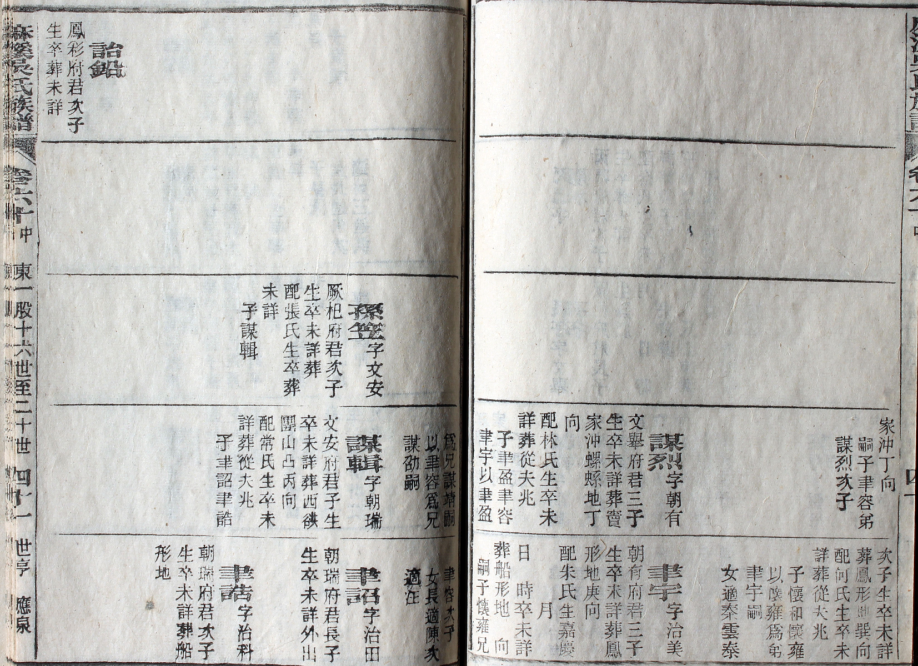 家沖丁向
嗣子聿容弟
謀烈次子
謀烈字朝有
文舉府君三子
生卒未詳葬賣
家沖螺螄地丁
向
配林氏生卒未
詳葬從夫兆
子聿盈聿容
聿宇以聿盈
次子生卒未詳
葬鳳形巽向
配何氏生卒未
詳葬從夫兆
子懷和懷雍
以懷雍為弟
聿宇嗣
女適秦雲泰
聿宇字治美
朝有府君三子
生卒未詳葬鳳
形地庚向
配朱氏生嘉慶
月
日 時卒未詳
葬船形地 向
嗣子懷雍兄
孫笠字文安
厥杞府君次子
生卒未詳葬
配張氏生卒葬
未詳
子謀輯
為兄謀靖嗣
以聿容為兄
謀劭嗣
謀輯字朝瑞
文安府君子生
卒未詳葬西
山凸丙向
配常氏生卒未
詳葬從夫兆
子聿詔聿誥
聿容次子
女長適陳次
適汪
聿詔字治田
朝瑞府君長子
生卒未詳外出
聿誥字治科
朝瑞府君次子
生卒未詳葬船
形地
詒鉛
鳳彩府君次子
生卒葬未詳
麻溪吳氏族譜
卷六十中
東一股十六世至二十世
四十一
世亨
應泉